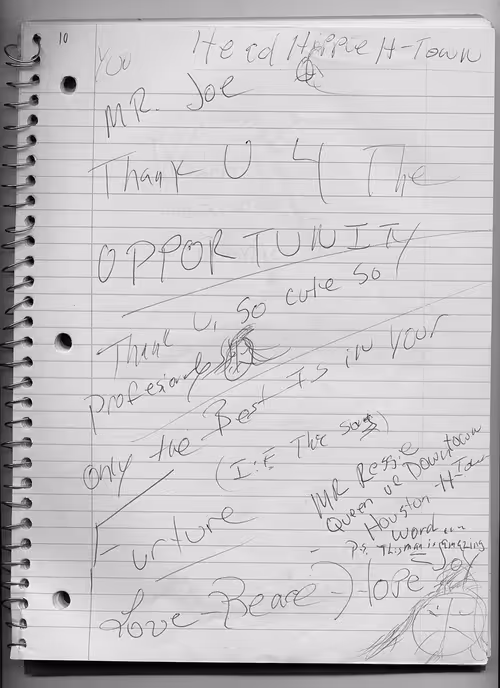 10
You Head Hippie H-Town
MR. Joe
Thank U 4 The
OPPORTUNITY
Thank U, So cute So
Only the Best Is in Your
(I:E The
Furture
MR Reggie
Queen of Downtown
Houston-H-Town
Word...
P.S. This man is amazing
Love-Peace-Hope Joy